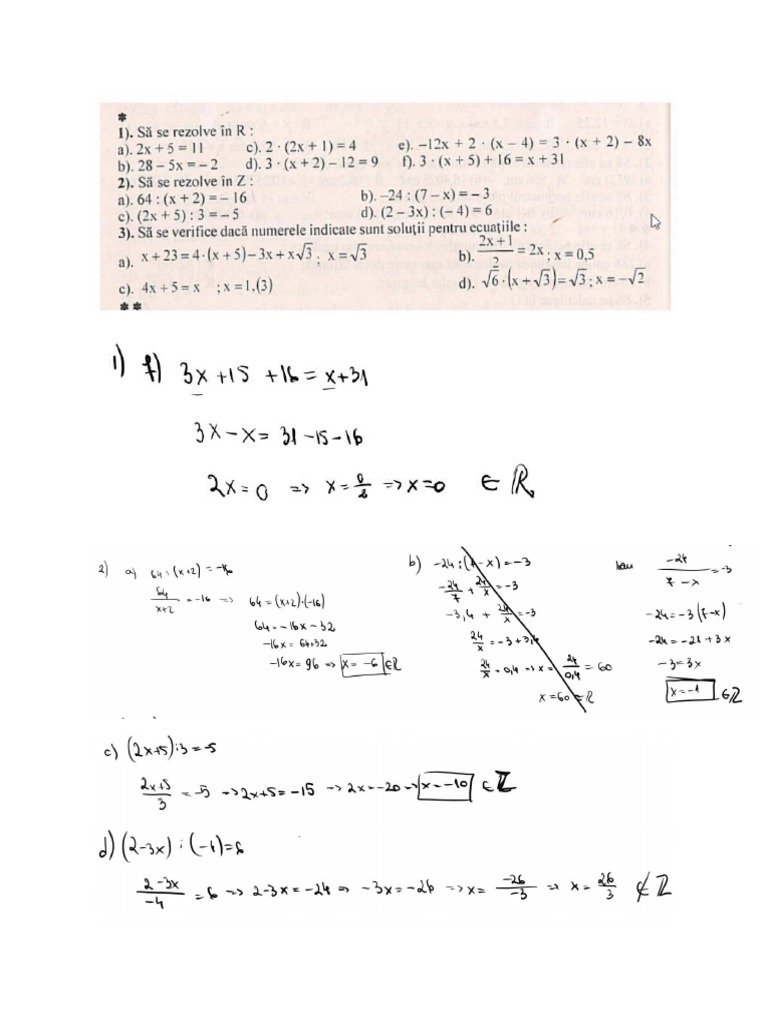 *
1). Să se rezolve în R :
a). 2x + 5 = 11 c). 2 · (2x + 1) = 4 e). –12x + 2 · (x – 4) = 3 · (x + 2) – 8x
b). 28 – 5x = – 2 d). 3 · (x + 2) – 12 = 9 f). 3 · (x + 5) + 16 = x + 31
2). Să se rezolve în Z :
a). 64 : (x + 2) = – 16 b). –24 : (7 – x) = – 3
c). (2x + 5) : 3 = – 5 d). (2 – 3x) : (– 4) = 6
3). Să se verifice dacă numerele indicate sunt soluţii pentru ecuaţiile :
a). x + 23 = 4·(x + 5)–3x + x√3 ; x = √3 b). (2x + 1)/2 = 2x ; x = 0,5
c). 4x + 5 = x ; x = 1,(3) d). √6 · (x + √3) = √3 ; x = –√2
* *
1) f) 3x + 15 + 16 = x + 31
3x – x = 31 – 15 – 16
2x = 0 => x = 0/2 => x = 0 ∈ R
2) a) 64 : (x+2) = –16
64/(x+2) = –16 => 64 = (x+2)·(–16)
64 = –16x – 32
–16x = 64+32
–16x = 96 => x = –6 ∈ Z
b) –24 : (7 – x) = –3
–24/7 + 24/x = –3
–3,4 + 24/x = –3
24/x = –3 + 3,4
24/x = 0,4 => x = 24/0,4 = 60
x = 60 ∈ R
sau –24/(7 – x) = –3
–24 = –3(7–x)
–24 = –21 + 3x
–3 = 3x
x = –1 ∈ Z
c) (2x+5) : 3 = –5
(2x+5)/3 = –5 => 2x+5 = –15 => 2x = –20 => x = –10 ∈ Z
d) (2–3x) : (–4) = 6
(2–3x)/–4 = 6 => 2–3x = –24 => –3x = –26 => x = –26/–3 => x = 26/3 ∉ Z